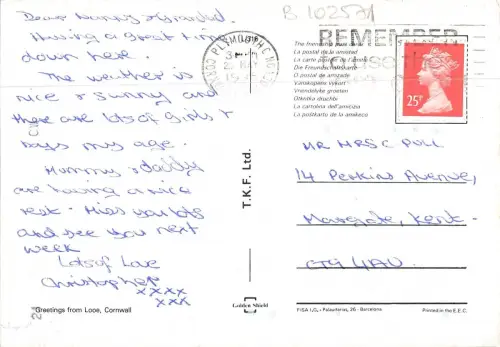 B 102501
Dear Nanny & Grandad.
Having a great time
down here.
The weather is
nice & sunny and
there are lots of girls &
boys my age.
Mummy & daddy
are having a nice
rest - Miss you lots
and see you next
week
Lots of Love
Christopher
xxxx
xxx
Greetings from Looe, Cornwall
T.K.F. Ltd.
Golden Shield
PLYMOUTH
REMEMBER
The friendship post card
La postal de la amistad
La carte postale de l'amitié
Die Freundschaftskarte
O postal da amizade
Vanskapens vykort
Vriendelijke groeten
La cartolina dell'amicizia
La postkarto de la amikeco
25P
MR MRS C PULL
14 Perkins Avenue,
Margate, Kent -
CT9 4AU.
FISA I.G. - Palaudarias, 26 - Barcelona
Printed in the E.E.C.